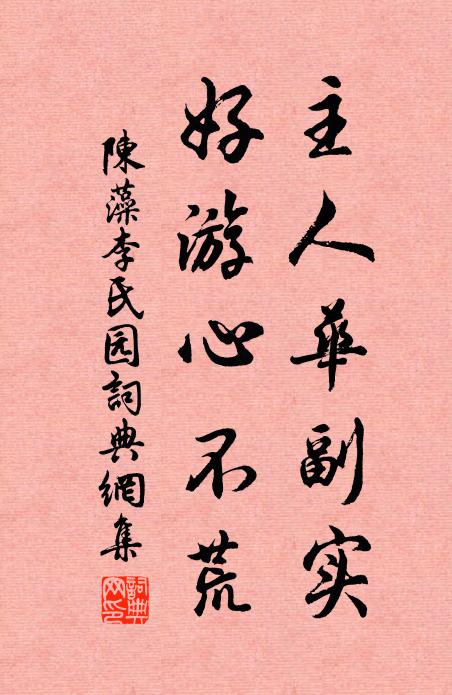 主人华副实
好游心不荒
陳藻李氏园詞典網集
詞典网印